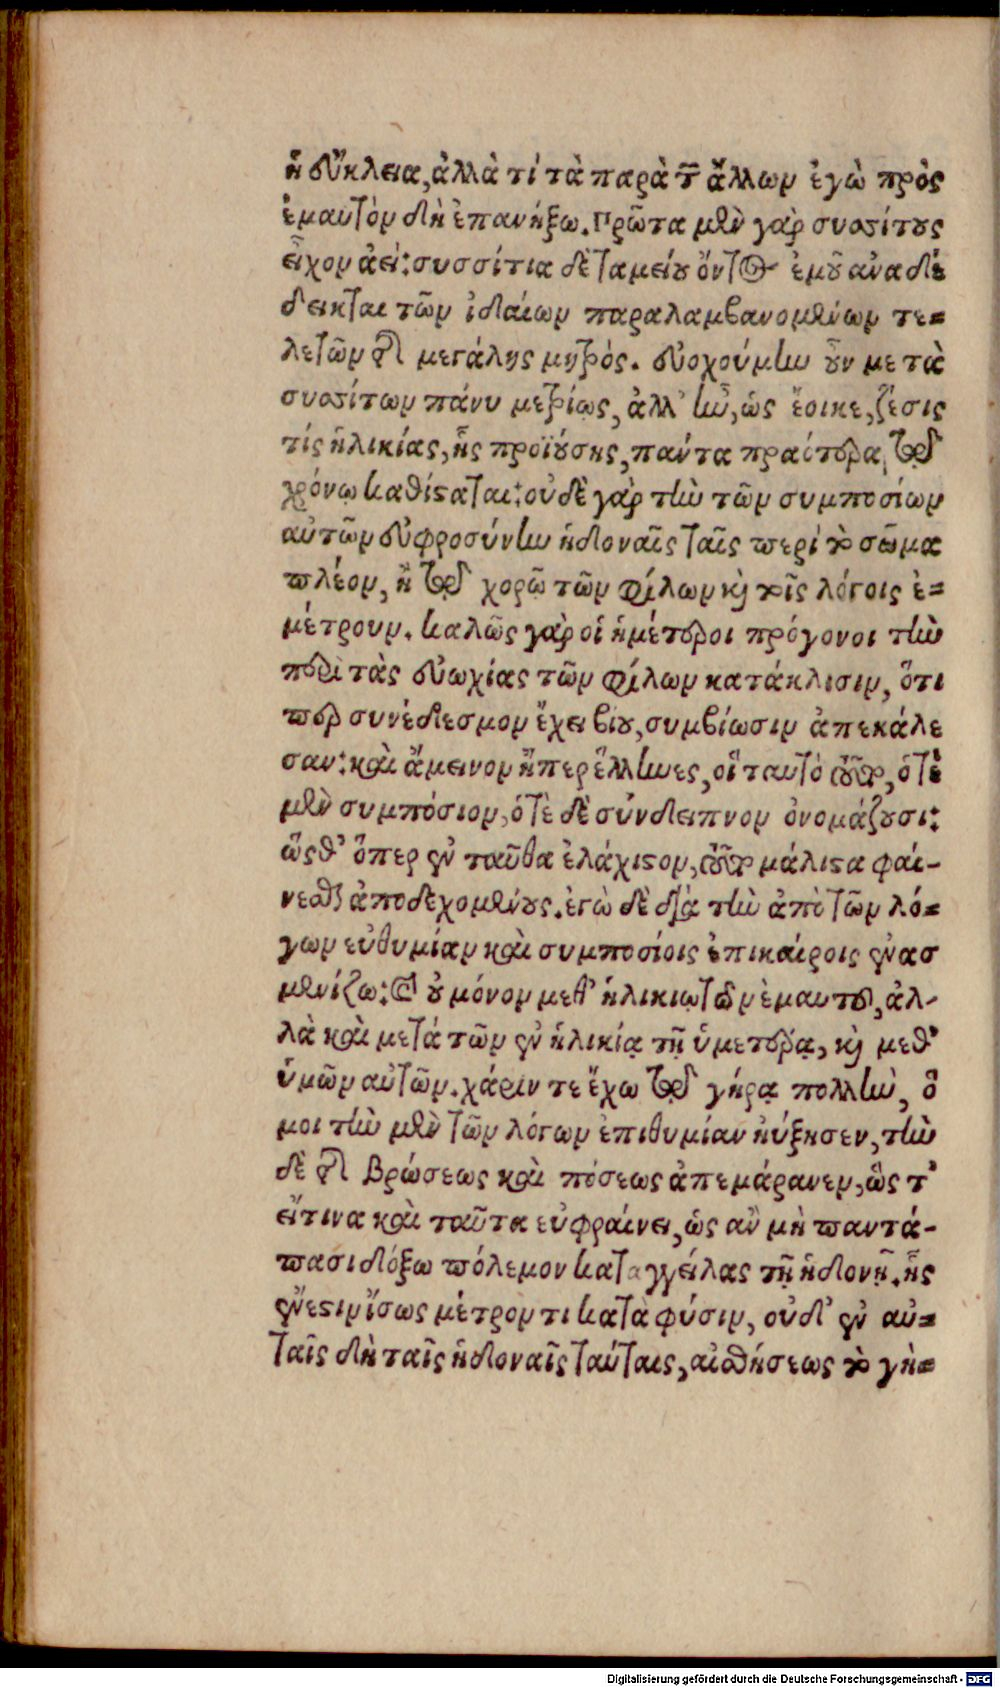 ἡ εὔκλεια, ἀλλὰ τί τὰ παρὰ τῶν ἄλλων ἐγὼ πρὸς
ἐμαυτὸν δὴ ἐπανήξω. Πρῶτα μὲν γὰρ συσσίτους
εἶχον ἀεί: συσσίτια δὲ ταμείου ὄντος ἐμοῦ ἀναδέ
δεικται τῶν ἰδαίων παραλαμβανομένων τε-
λετῶν τῆς μεγάλης μητρός. εὐοχούμην οὖν μετὰ
συσσίτων πάνυ μετρίως, ἀλλ' ἦν, ὡς ἔοικε, ζέσις
τίς ἡλικίας, ἧς προϊούσης, πάντα πραότερα τῷ
χρόνῳ καθίσαται: οὐδὲ γὰρ τὴν τῶν συμποσίων
αὐτῶν εὐφροσύνην ἡδοναῖς ταῖς περὶ τὸ σῶμα
πλέον, ἢ τῷ χορῷ τῶν φίλων καὶ τοῖς λόγοις ἐ-
μέτρουν. καλῶς γὰρ οἱ ἡμέτεροι πρόγονοι τὴν
περὶ τὰς εὐωχίας τῶν φίλων κατάκλισιν, ὅτι
περ συνέδεσμον ἔχει βίου, συμβίωσιν ἀπεκάλε
σαν: καὶ ἄμεινον ἤπερ ἕλληνες, οἳ ταυτὸ τοῦτο, ὁτὲ
μὲν συμπόσιον, ὁτὲ δὲ σύνδειπνον ὀνομάζουσι:
ὥςθ' ὅπερ ἐν ταῦθα ἐλάχιστον, τοῦτο μάλιστα φαί-
νεσθαι ἀποδεχομένους. ἐγὼ δὲ διὰ τὴν ἀπὸ τῶν λό-
γων εὐθυμίαν καὶ συμποσίοις ἐπικαίροις ἐνασ
μενίζω: καὶ οὐ μόνον μεθ' ἡλικιωτῶν ἐμαυτοῦ, ἀλ-
λὰ καὶ μετά τῶν ἐν ἡλικίᾳ τῇ ὑμετέρᾳ, καὶ μεθ'
ὑμῶν αὐτῶν. χάριν τε ἔχω τῷ γήρᾳ πολλὴν, ὅ
μοι τὴν μὲν τῶν λόγων ἐπιθυμίαν ηὔξησεν, τὴν
δὲ τῆς βρώσεως καὶ πόσεως ἀπεμάρανεν, ὥς τ'
εἴτινα καὶ ταῦτα εὐφραίνει, ὡς ἂν μὴ παντά-
πασι δόξω πόλεμον καταγγείλας τῇ ἡδονῇ. ἧς
ἔνεστιν ἴσως μέτρον τι κατὰ φύσιν, οὐδ' ἐν αὐ-
ταῖς δὴ ταῖς ἡδοναῖς ταύταις, αἰσθήσεως τὸ γὴ-
Digitalisierung gefördert durch die Deutsche Forschungsgemeinschaft - DFG